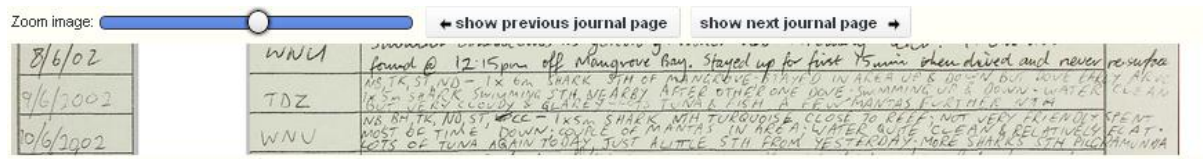 Zoom image:
show previous journal page
show next journal page
8/6/02 WNU
found @ 12:15pm off Mangrove Bay. Stayed up for first 15min then dived and never resurface
NB, TK, ST, ND - 1x 6m SHARK STH OF MANGROVE - STAYED IN AREA UP & DOWN BUT DOVE EARLY
9/6/2002 TDZ
SHARK SWIMMING STH, NEARBY AFTER OTHER ONE DOVE - SWIMMING UP & DOWN - WATER CLEAN
BUT VERY CLOUDY & GLAREY - LOTS TUNA & FISH A FEW MANTAS FURTHER NTH
NB, BH, TK, ND, ST, CC - 1x5m SHARK NTH TURQUOISE, CLOSE TO REEF; NOT VERY FRIENDLY SPENT
10/6/2002 WNU
MOST OF TIME DOWN; COUPLE OF MANTAS IN AREA; WATER QUITE CLEAN & RELATIVELY FLAT.
LOTS OF TUNA AGAIN TODAY, JUST A LITTLE STH FROM YESTERDAY - MORE SHARKS STH PILGRAMUNNA